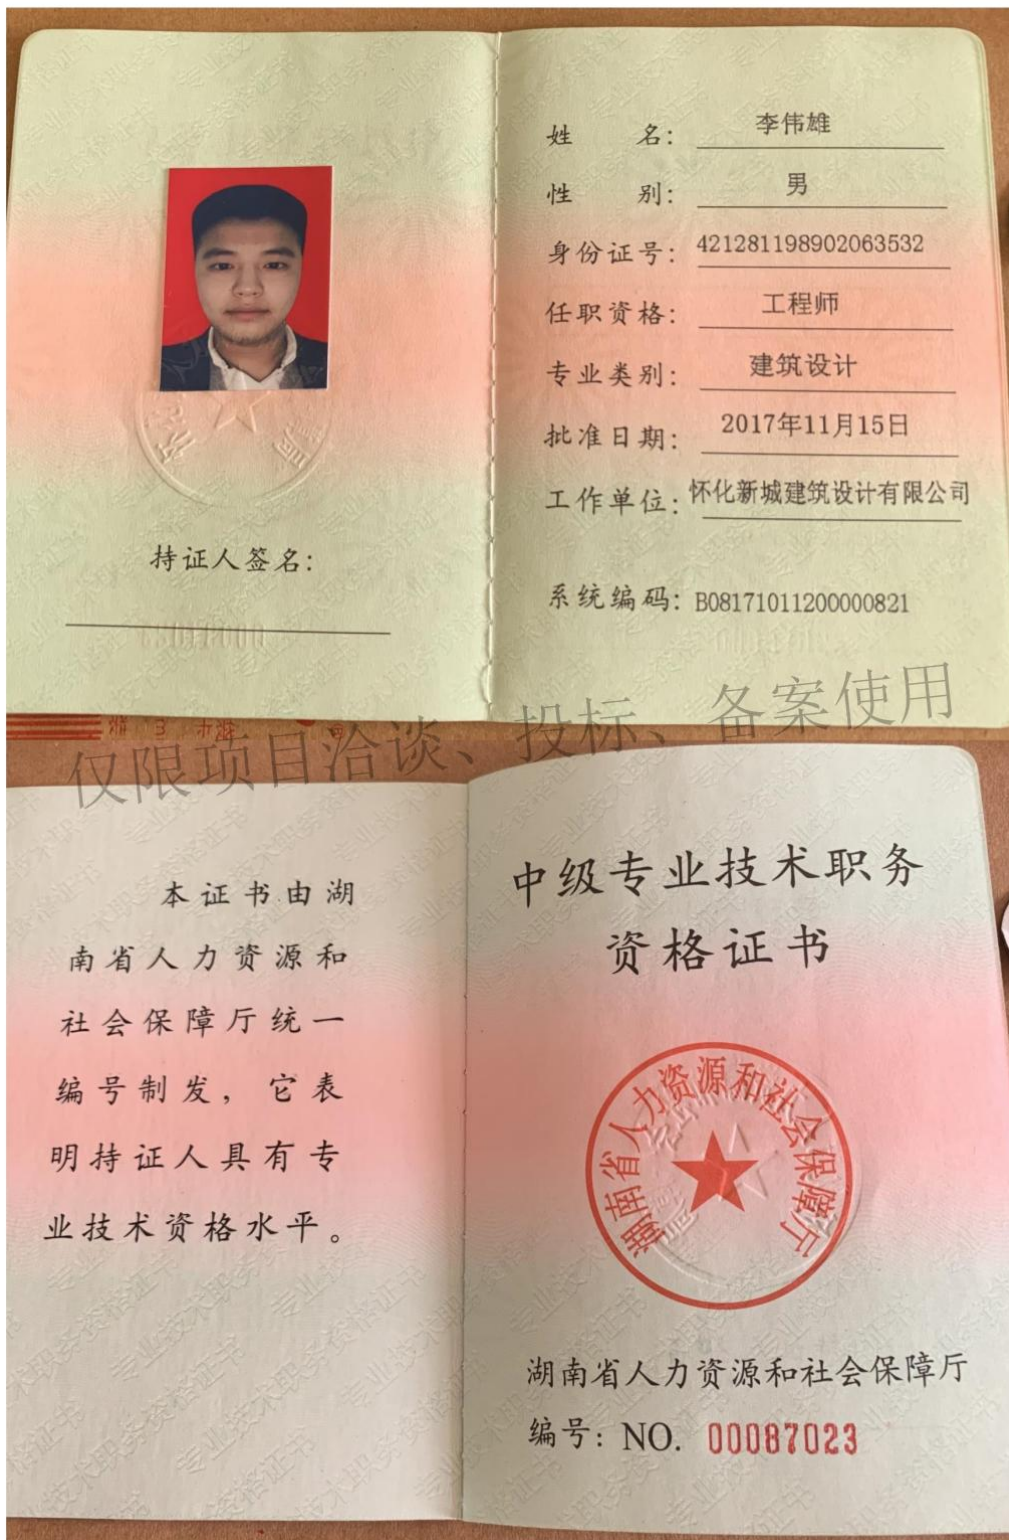 姓 名：李伟雄
性 别：男
身份证号：421281198902063532
任职资格：工程师
专业类别：建筑设计
批准日期：2017年11月15日
工作单位：怀化新城建筑设计有限公司
持证人签名：
系统编码：B08171011200000821
仅限项目洽谈、投标、备案使用
本证书由湖
南省人力资源和
社会保障厅统一
编号制发，它表
明持证人具有专
业技术资格水平。
中级专业技术职务
资格证书
湖南省人力资源和社会保障厅
湖南省人力资源和社会保障厅
编号：NO. 00087023